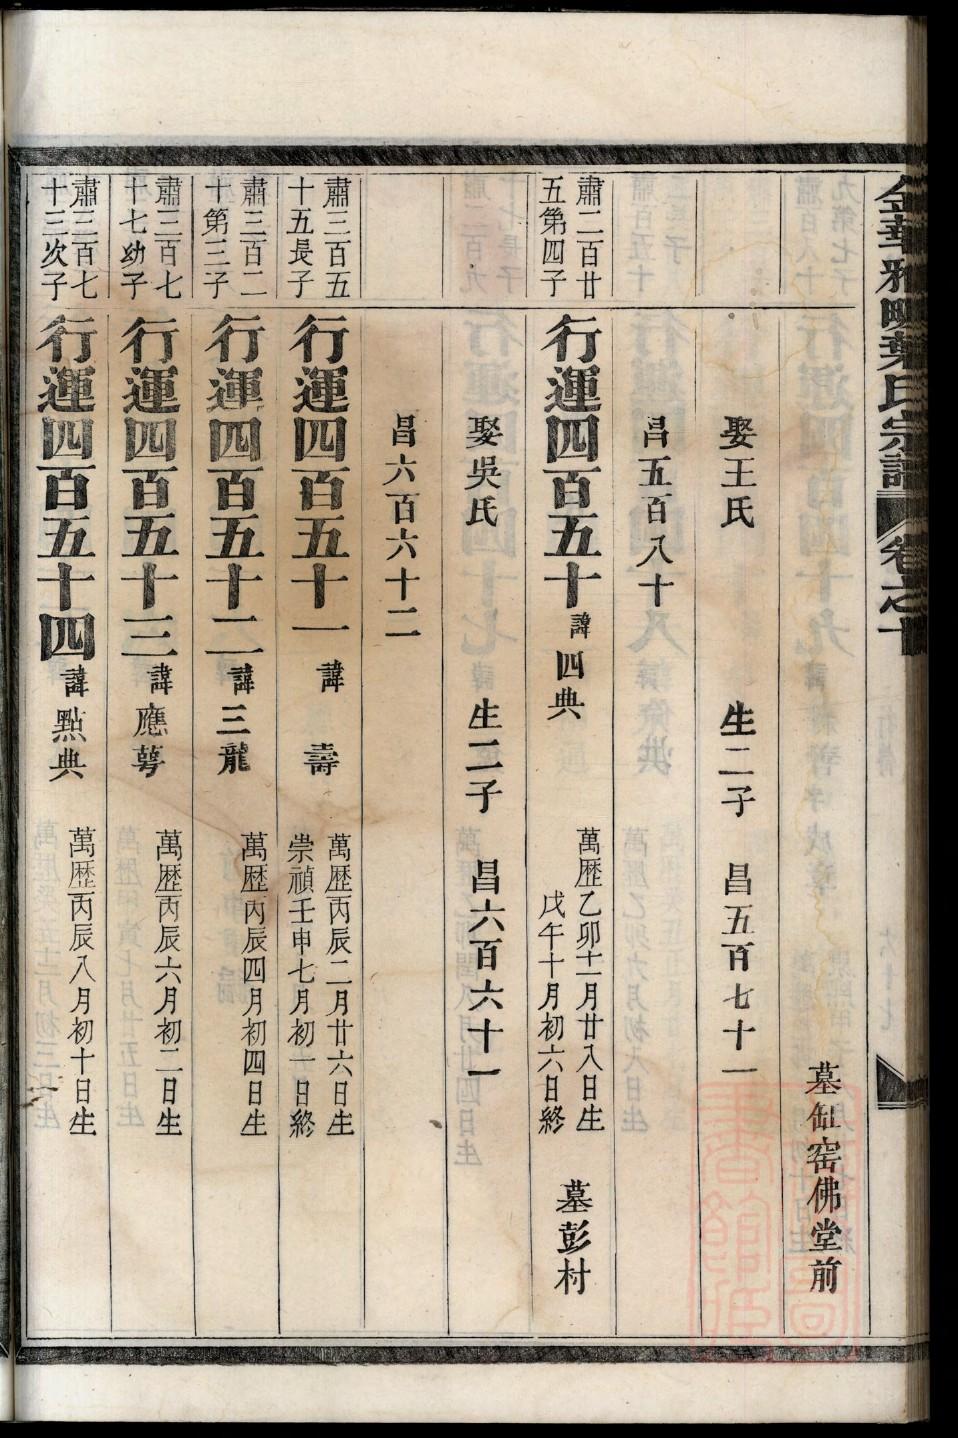 金華雅畈葉氏宗譜 卷之十
墓缸窑佛堂前
娶王氏 生二子 昌五百七十一
昌五百八十
肅二百廿五第四子 行運四百五十 諱四典 萬歷乙卯十一月廿八日生 戊午十月初六日終 墓彭村
娶吳氏 生二子 昌六百六十一
昌六百六十二
肅三百五十五長子 行運四百五十一 諱壽 萬歷丙辰二月廿六日生 崇禎壬申七月初一日終
肅三百二十第三子 行運四百五十二 諱三龍 萬歷丙辰四月初四日生
肅三百七十七幼子 行運四百五十三 諱應萼 萬歷丙辰六月初二日生
肅三百七十三次子 行運四百五十四 諱點典 萬歷丙辰八月初十日生